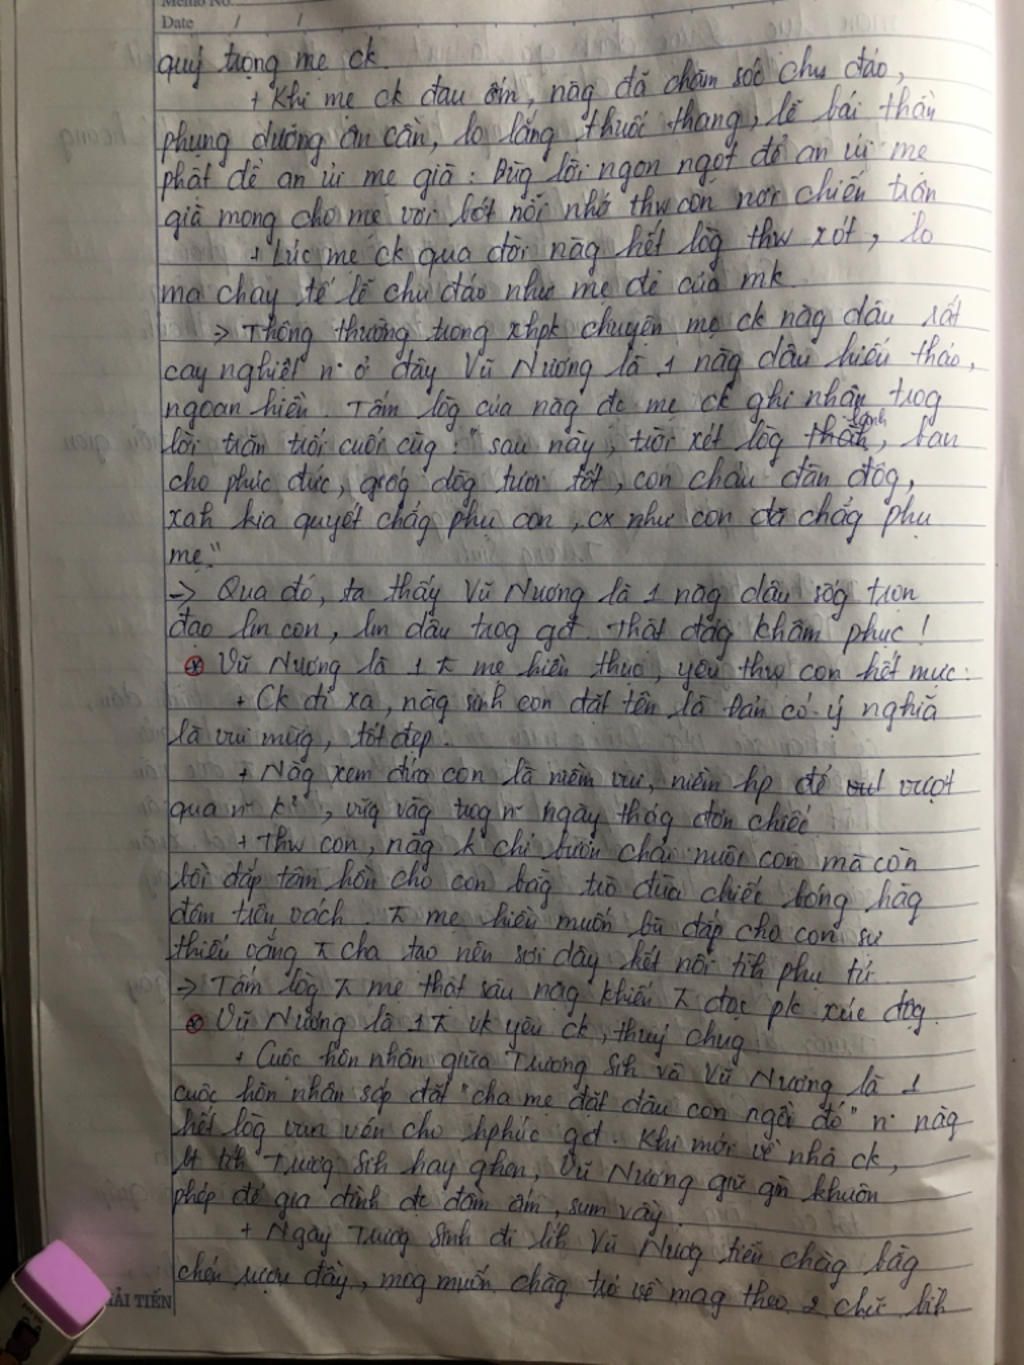 Memo No.
Date / /
quý trọng mẹ ck.
+ Khi mẹ ck đau ốm, nàg đã chăm sóc chu đáo,
phụng dưỡng ân cần, lo lắng thuốc thang, lễ bái thần
phật để an ủi mẹ già : Dùg lời ngon ngọt để an ủi mẹ
già mong cho mẹ vơi bớt nỗi nhớ thw con nơi chiến trận
+ Lúc mẹ ck qua đời nàg hết lòg thw xót, lo
ma chay tế lễ chu đáo như mẹ đẻ của mk.
> Thông thường trong xhpk chuyện mẹ ck nàg dâu rất
cay nghiệt n· ở đây Vũ Nương là 1 nàg dâu hiếu thảo,
ngoan hiền. Tấm lòg của nàg đc mẹ ck ghi nhận trog
lời trăn trối cuối cùg : "sau này, trời xét lòg thàn lành, ban
cho phúc đức, giốg dòg tươi tốt, con cháu đàn đôg,
xah kia quyết chẳg phụ con, cx như con đã chẳg phụ
mẹ."
-> Qua đó, ta thấy Vũ Nương là 1 nàg dâu sốg trọn
đạo làm con, làm dâu trog gđ. Thật đág khâm phục !
Vũ Nương là 1 mẹ hiền thục, yêu thw con hết mực :
+ Ck đi xa, nàg sinh con đặt tên là Đản có ý nghĩa
là vui mừg, tốt đẹp.
+ Nàg xem đứa con là niềm vui, niềm hp để vượt
qua n~ k², vữg vàg trog n~ ngày thág đơn chiếc
+ Thw con, nàg k chỉ buôn chải nuôi con mà còn
bồi đắp tâm hồn cho con bằg trò đùa chiếc bóng hàg
đêm trên vách. mẹ hiền muốn bù đắp cho con sự
thiếu vắng cha tạo nên sợi dây kết nối tìh phụ tử.
-> Tấm lòg mẹ thật sâu nặg khiến đọc pk xúc độg.
Vũ Nương là 1 vk yêu ck, thuỷ chug
+ Cuộc hôn nhân giữa Trương Sih và Vũ Nương là 1
cuộc hôn nhân sắp đặt "cha mẹ đặt đâu con ngồi đó" n· nàg
hết lòg vun vén cho hphúc gđ. Khi mới về nhà ck,
tíh Trươg Sih hay ghen, Vũ Nương giữ gìn khuôn
phép để gia đình đc đầm ấm, sum vầy.
+ Ngày Trươg Sinh đi líh Vũ Nươg tiễn chàg bằg
chén rượu đầy, mog muốn chàg trở về mag theo 2 chữ bìh
HẢI TIẾN